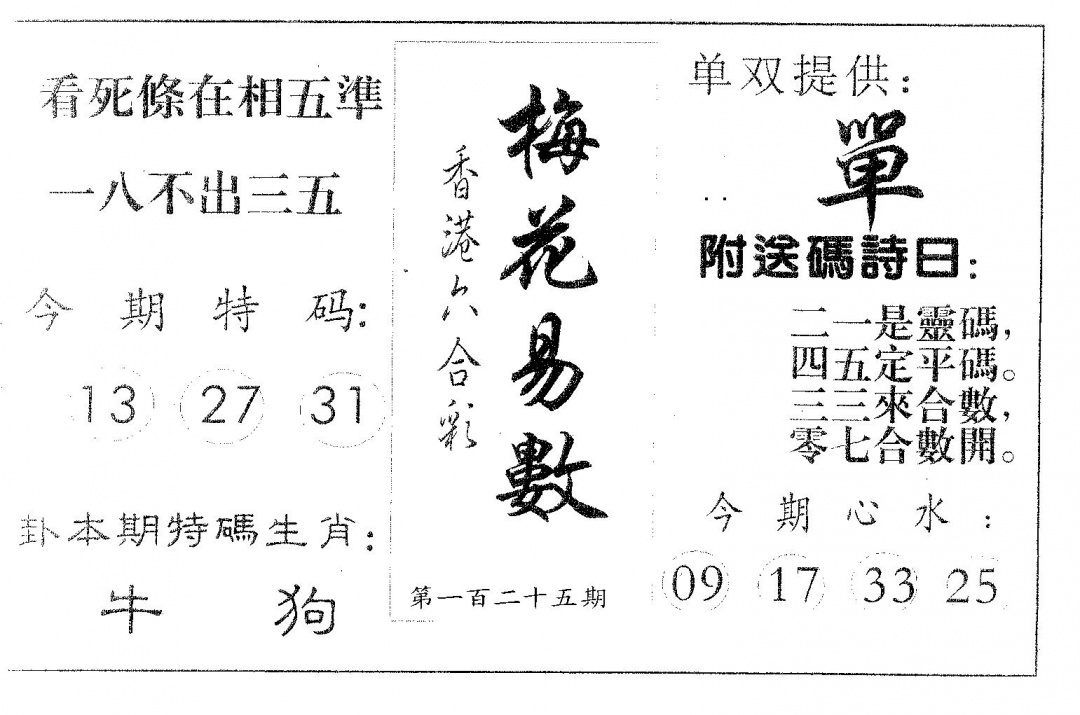 看死條在相五準
一八不出三五
今期特码:
13 27 31
卦本期特碼生肖:
牛 狗
梅花易數
香港六合彩
第一百二十五期
单双提供:
單
附送碼詩曰:
二一是靈碼,
四五定平碼。
三三來合數,
零七合數開。
今期心水:
09 17 33 25